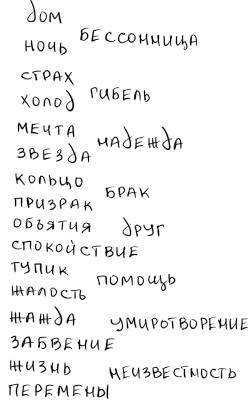 дом
БЕССОННИЦА
НОЧЬ
СТРАХ
ГИБЕЛЬ
ХОЛОД
МЕЧТА
НАДЕЖДА
ЗВЕЗДА
КОЛЬЦО
БРАК
ПРИЗРАК
ОБЪЯТИЯ
ДРУГ
СПОКОЙСТВИЕ
ТУПИК
ПОМОЩЬ
ЖАЛОСТЬ
ЖАЖДА
УМИРОТВОРЕНИЕ
ЗАБВЕНИЕ
ЖИЗНЬ
НЕИЗВЕСТНОСТЬ
ПЕРЕМЕНЫ